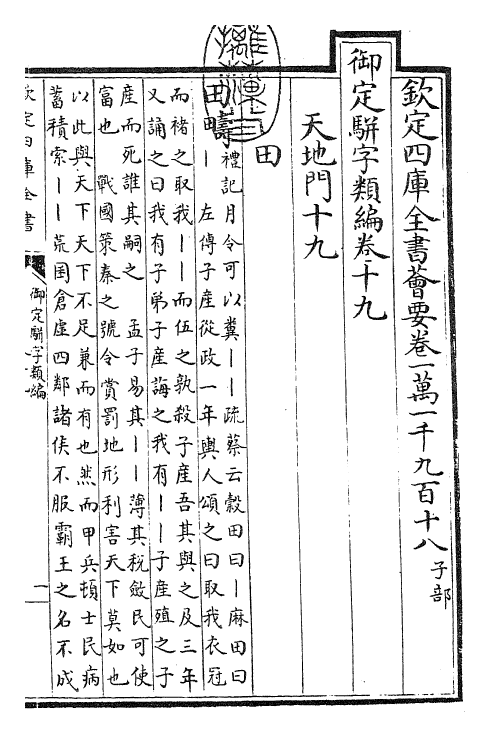 欽定四庫全書薈要卷一萬一千九百十八子部
御定駢字類編卷十九
天地門十九
田
田疇
禮記月令可以糞丨丨疏蔡云穀田曰丨麻田曰
丨　左傳子產從政一年輿人頌之曰取我衣冠
而褚之取我丨丨而伍之孰殺子產吾其與之及三年
又誦之曰我有子弟子產誨之我有丨丨子產殖之子
產而死誰其嗣之　孟子易其丨丨薄其稅斂民可使
富也　戰國策秦之號令賞罰地形利害天下莫如也
以此與天下天下不足兼而有也然而甲兵頓士民病
蓄積索丨丨荒囷倉虛四鄰諸侯不服霸王之名不成
欽定四庫全書
御定駢字類編
一